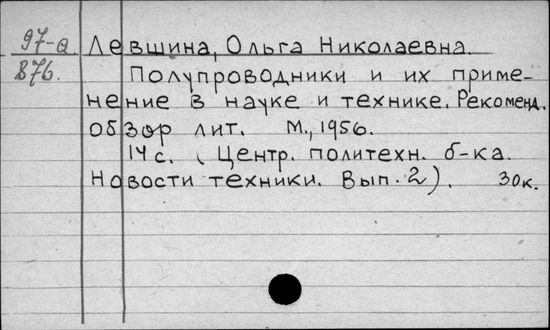 97-а Левшина, Ольга Николаевна.
876. Полупроводники и их приме-
нение в науке и технике. Рекоменд.
обзор лит. М., 1956.
14 с. (Центр. политехн. б-ка.
Новости техники. Вып. 2). 30к.